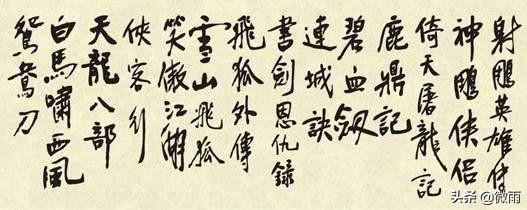 射鵰英雄傳
神鵰俠侶
倚天屠龍記
鹿鼎記
碧血劍
連城訣
書劍恩仇錄
飛狐外傳
雪山飛狐
笑傲江湖
俠客行
天龍八部
白馬嘯西風
鴛鴦刀
头条 @微雨